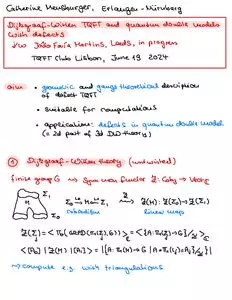 Catherine Meusburger, Erlangen-Nürnberg
Dijkgraaf-Witten TQFT and quantum double models
with defects
w João Faria Martins, Leeds, in progress
TQFT Club Lisbon, June 19 2024
aim • geometric and gauge theoretical description
of defect TQFT
• suitable for computations
• application: defects in quantum double model
(= 2d part of 3d DW theory)
① Dijkgraaf-Witten theory (untwisted)
finite group G ⇝ symm mon functor Z: Cob₃ → Vect
cobordism
linear map
⇝ compute e.g. with triangulations